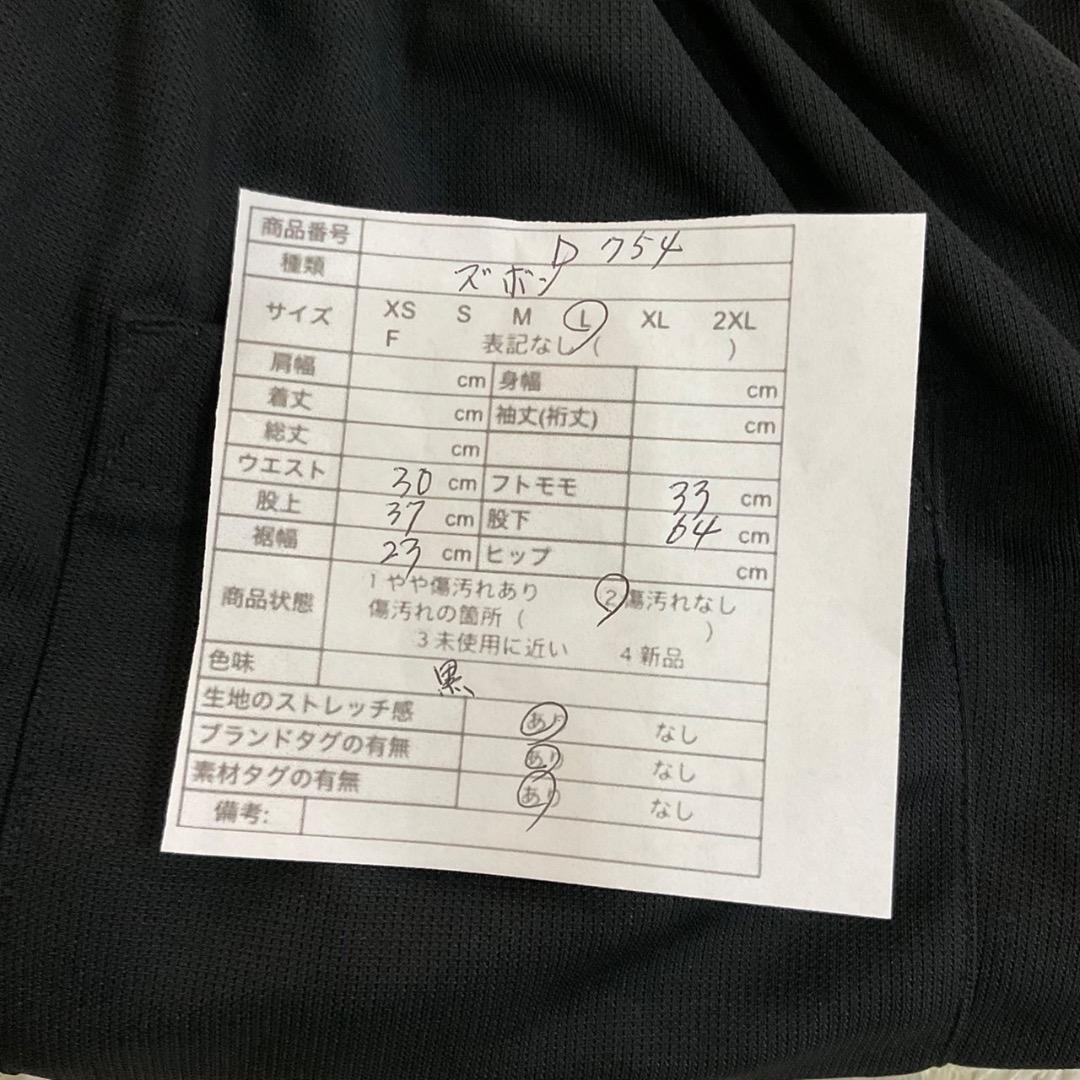 商品番号 D754
種類 ズボン
サイズ XS S M L XL 2XL
F 表記なし ( )
肩幅 cm 身幅 cm
着丈 cm 袖丈(裄丈) cm
総丈 cm
ウエスト 30 cm フトモモ 33 cm
股上 37 cm 股下 64 cm
裾幅 23 cm ヒップ cm
商品状態 1 やや傷汚れあり 2 傷汚れなし
傷汚れの箇所 ( )
3 未使用に近い 4 新品
色味 黒
生地のストレッチ感 あり なし
ブランドタグの有無 あり なし
素材タグの有無 あり なし
備考: